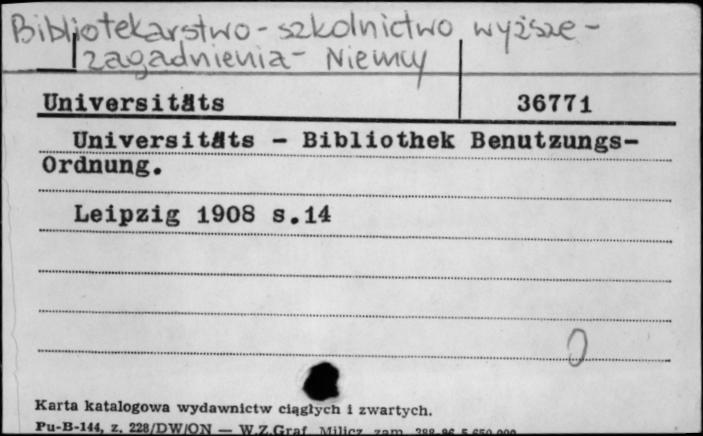 Bibliotekarstwo - szkolnictwo wyższe -
zagadnienia - Niemcy
Universitäts 36771
Universitäts - Bibliothek Benutzungs-
Ordnung.
Leipzig 1908 s.14
0
Karta katalogowa wydawnictw ciągłych i zwartych.
Pu-B-144, z. 228/DW/ON — W.Z.Graf. Milicz zam.